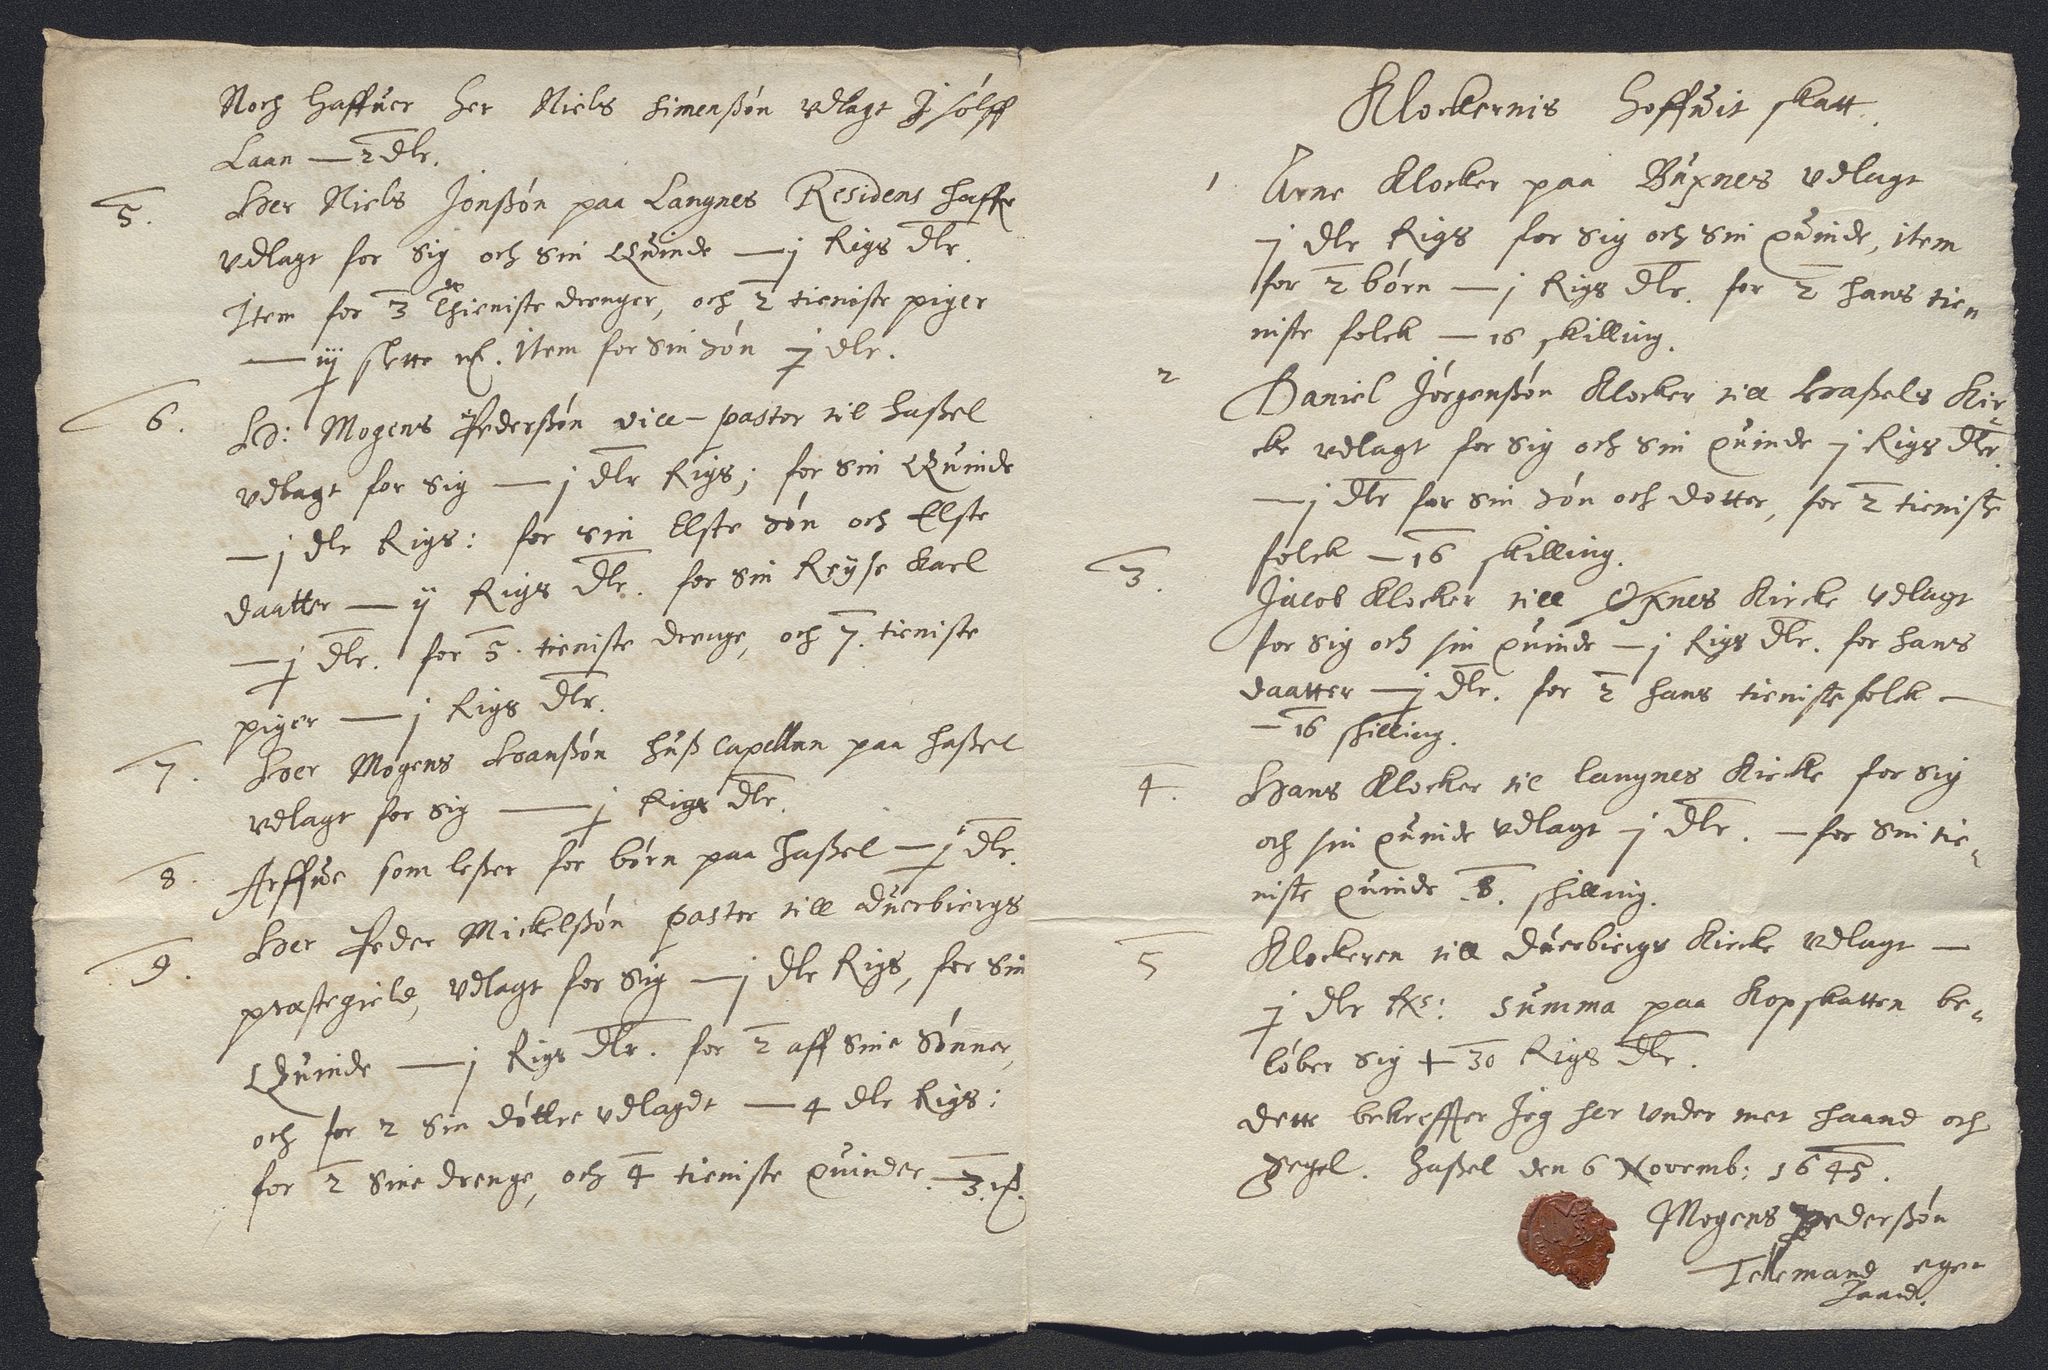 Noch haffuer her Niels Simenßøn udlagt J sølff
Laan — 2 dlr.
5. Her Niels Jonßøn paa Langnes Residens haffr
udlagt for sig och sin Quinde — j Rigs dlr.
Item for 3 thieniste drenger, och 2 tieniste piger
— iij slette mk. Item for sin søn j dlr.
6. H: Mogens Pederßøn vice-pastor til Haßel
udlagt for sig — j dlr Rigs; for sin Quinde
— j dlr Rigs: for sin Elste søn och Elste
daatter — ij Rigs dlr. for sin Reyse Karl
— j dlr. for 5. tieniste drenge, och 7. tieniste
piger — j Rigs dlr.
7. Her Mogens Hanßøn Huß Capellan paa Haßel
udlagt for sig — j Rigs dlr.
8. Arffue som leßer for børn paa Haßel — j dlr.
9. Her Peder Mickelßøn pastor till Duerbiergs
præstegield, udlagt for sig — j dlr Rigs, for sin
Quinde — j Rigs dlr. for 2 aff sine sønner,
och for 2 sin døttre udlagdt — 4 dlr Rigs:
for 2 sine drenge, och 4 tieniste quinder. — 3. mk.
Klockernis Hoffuit skatt.
1 Arne Klocker paa Buxnes udlagt
j dlr Rigs for sig och sin quinde, item
for 2 børn — j Rigs dlr. for 2 hans tie-
niste folck — 16 skilling.
2 Daniel Jørgenßøn Klocker till Haßels Kir-
cke udlagt for sig och sin quinde j Rigs dlr.
— j dlr for sin søn och dotter, for 2 tieniste
folck — 16 skilling.
3. Jacob Klocker till Øxnes Kircke udlagt
for sig och sin quinde — j Rigs dlr. for hans
daatter — j dlr. for 2 hans tieniste folck —
— 16 skilling.
4. Hans Klocker til Langnes Kircke for sig
och sin quinde udlagt j dlr. — for sin tie-
niste quinde .8. skilling.
5 Klockeren till Duerbiergs Kircke udlagt —
j dlr Rs: Summa paa Kopskatten be-
løber sig + 30 Rigs dlr.
Dette bekreffter Jeg her under met haand och
Segel. Haßel den 6 Novemb: 1645.
Mogens Pederßøn
Tellemand egen
haand.